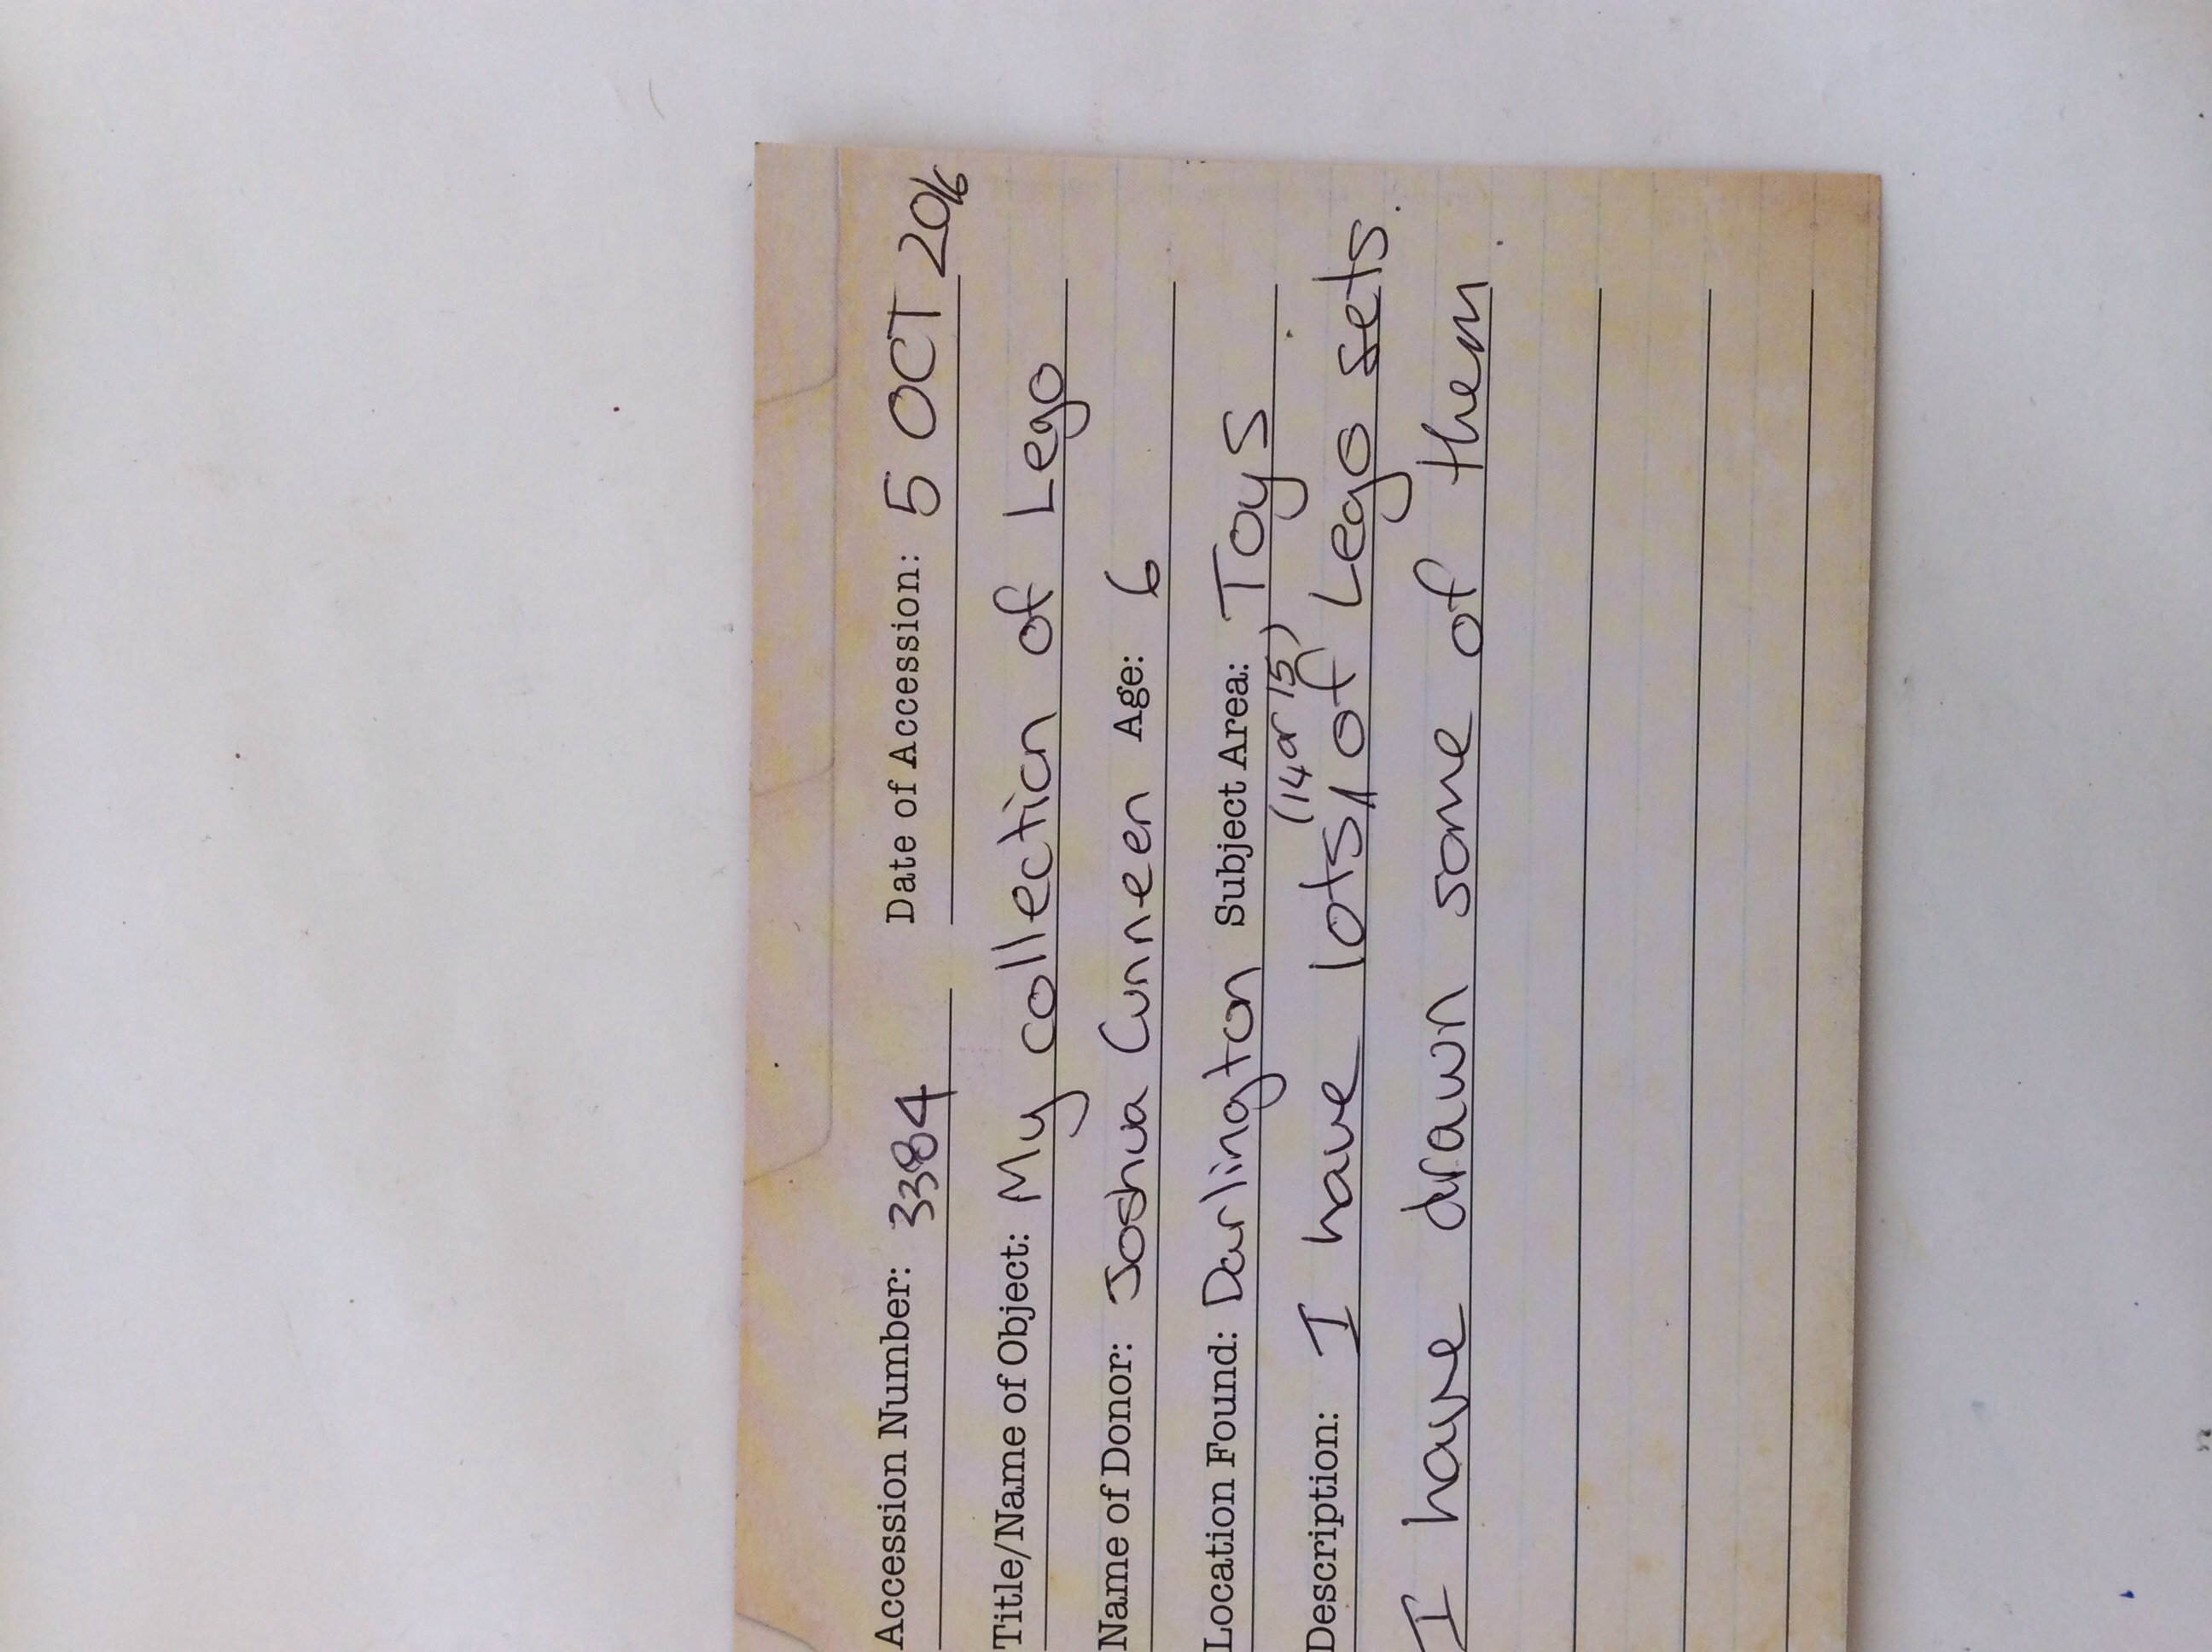 Accession Number: 3384 Date of Accession: 5 OCT 2016
Title/Name of Object: My collection of Lego
Name of Donor: Joshua Cunneen Age: 6
Location Found: Darlington Subject Area: Toys
(14 or 15)
Description: I have lots, of Lego sets.
I have drawn some of them